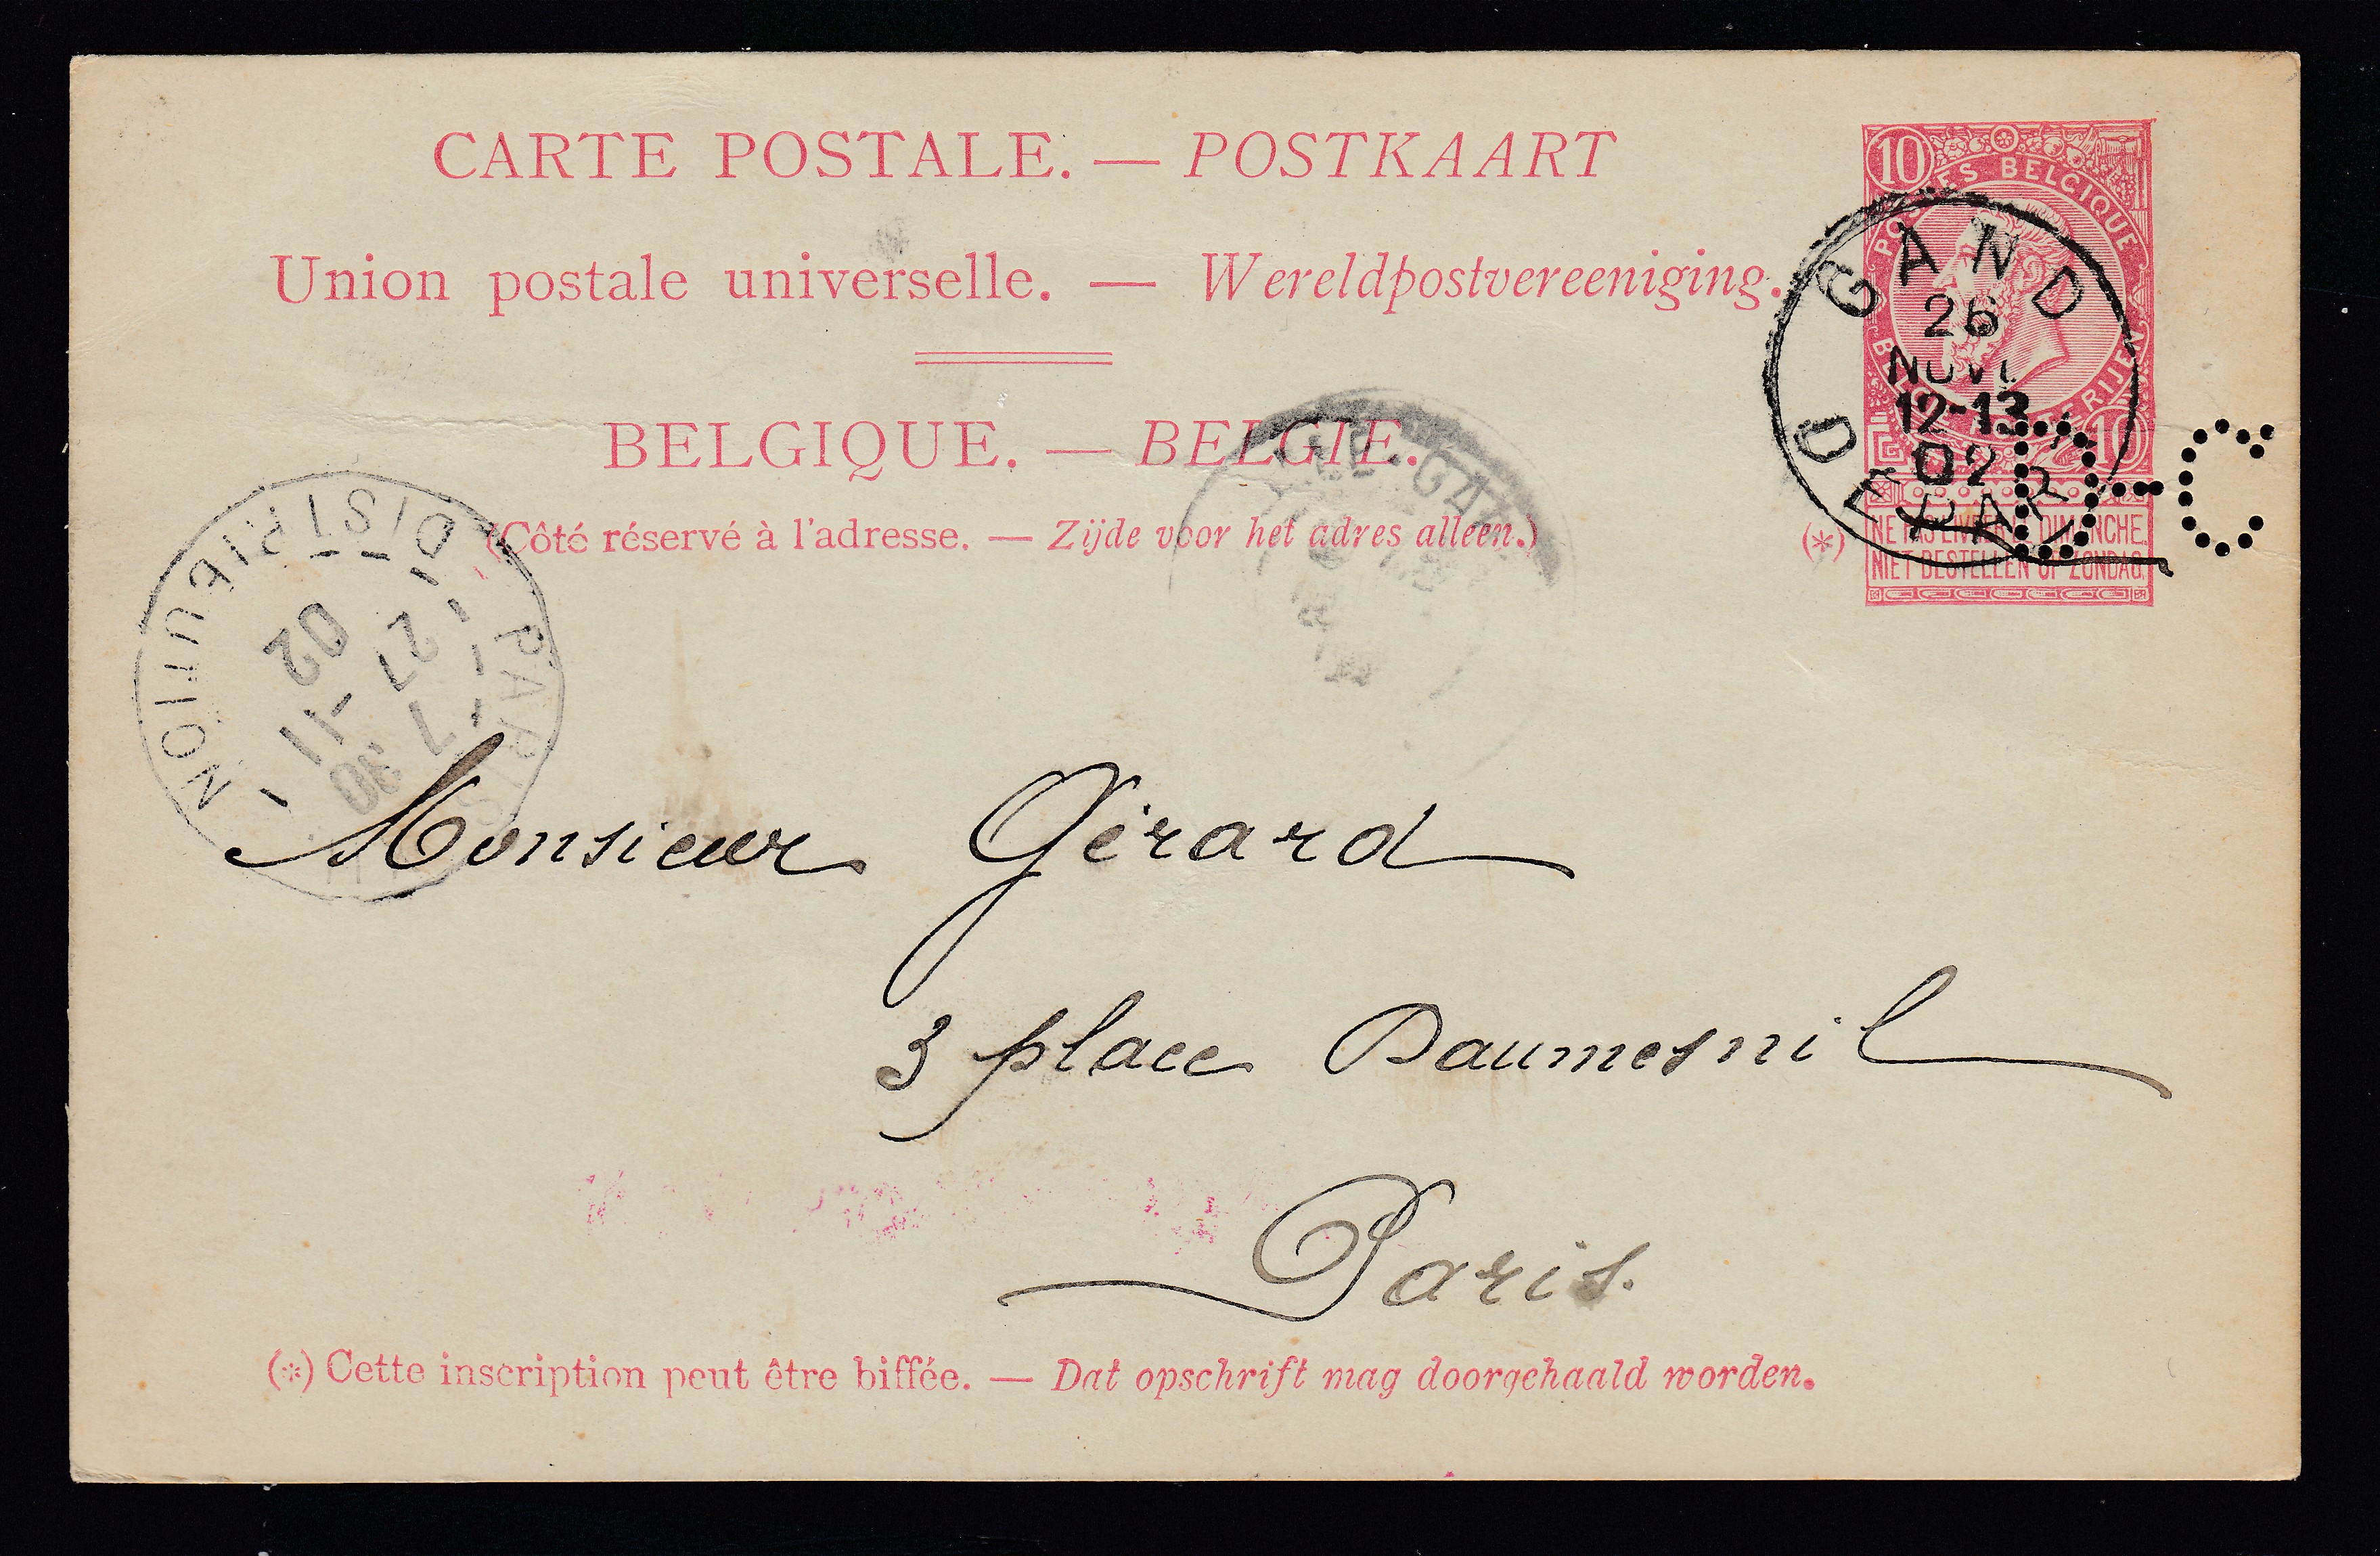 CARTE POSTALE. — POSTKAART
Union postale universelle. — Wereldpostvereeniging.
BELGIQUE. — BELGIE.
(Côté réservé à l'adresse. — Zijde voor het adres alleen.)
10
POSTES BELGIQUE
10
(*)
NE PAS LIVRER LE DIMANCHE.
NIET BESTELLEN OP ZONDAG.
GAND
26
NOV.
12-13
02
DEPART
D-C
PARIS
DISTRIBUTION
7 30
27 -11
02
Monsieur Gérard
3 place Daumesnil
Paris.
(*) Cette inscription peut être biffée. — Dat opschrift mag doorgehaald worden.